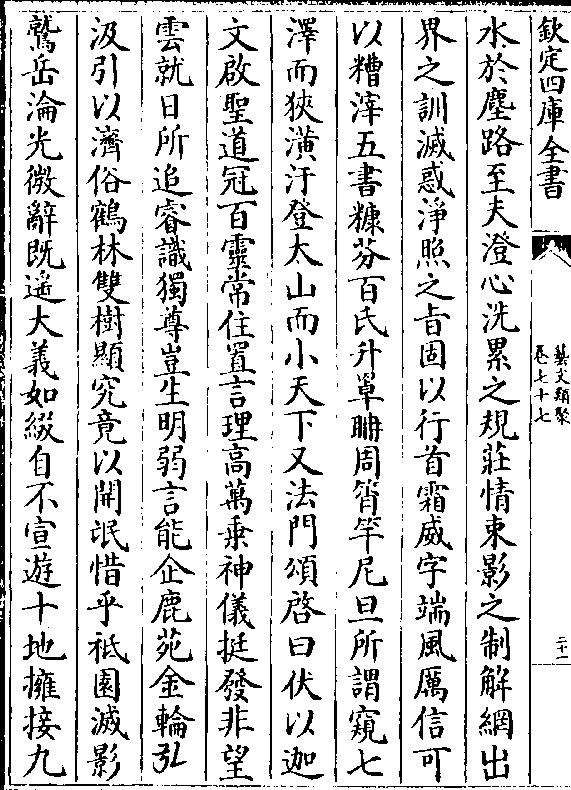 欽定四庫全書
藝文類聚
卷七十七
二十一
水於塵路至夫澄心洗累之規莊情束影之制解網出
界之訓滅惑淨照之旨固以行首霜威字端風厲信可
以糟滓五書糠芬百氏升單𦙍周筲竿尼旦所謂窺七
澤而狹潢汙登大山而小天下又法門頌啓曰伏以迦
文啟聖道冠百靈常住置言理高萬乗神儀挺發非望
雲就日所追睿識獨尊豈生明弱言能企鹿苑金輪弘
汲引以濟俗鶴林雙樹顯究竟以開氓惜乎祗園滅影
鷲岳淪光微辭旣遙大義如綴自不宣遊十地擁接九